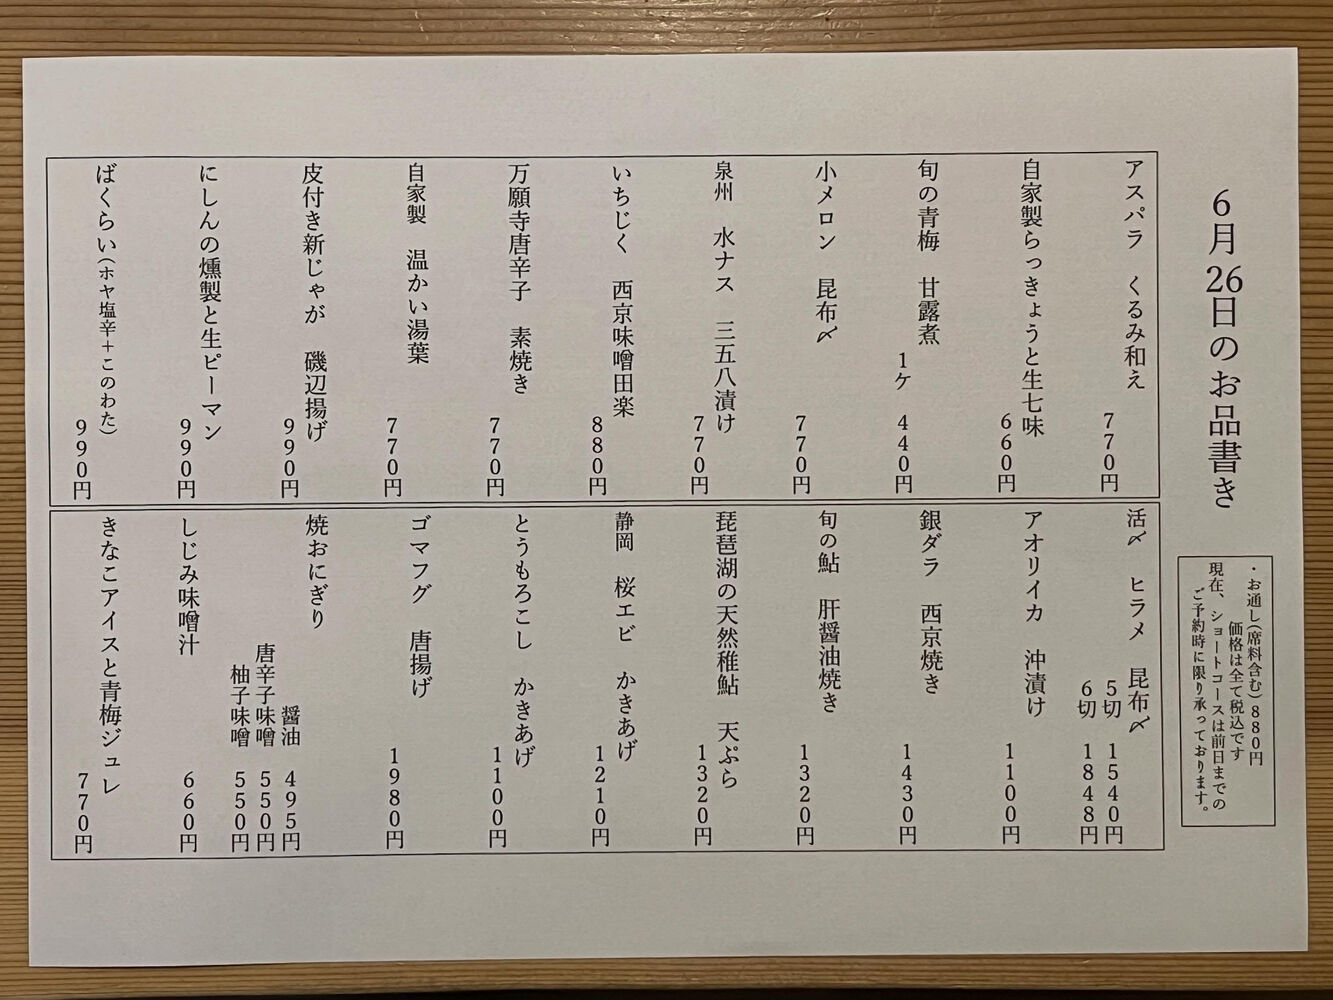 6月26日のお品書き
・お通し(席料含む)880円
価格は全て税込です
現在、ショートコースは前日までの
ご予約時に限り承っております。
アスパラ　くるみ和え
770円
自家製らっきょうと生七味
660円
旬の青梅　甘露煮
1ケ　440円
小メロン　昆布〆
770円
泉州　水ナス　三五八漬け
770円
いちじく　西京味噌田楽
880円
万願寺唐辛子　素焼き
770円
自家製　温かい湯葉
770円
皮付き新じゃが　磯辺揚げ
990円
にしんの燻製と生ピーマン
990円
ばくらい(ホヤ塩辛+このわた)
990円
活〆　ヒラメ　昆布〆
5切　1540円
6切　1848円
アオリイカ　沖漬け
1100円
銀ダラ　西京焼き
1430円
旬の鮎　肝醤油焼き
1320円
琵琶湖の天然稚鮎　天ぷら
1320円
静岡　桜エビ　かきあげ
1210円
とうもろこし　かきあげ
1100円
ゴマフグ　唐揚げ
1980円
焼おにぎり
醤油　495円
唐辛子味噌　550円
柚子味噌　550円
しじみ味噌汁
660円
きなこアイスと青梅ジュレ
770円